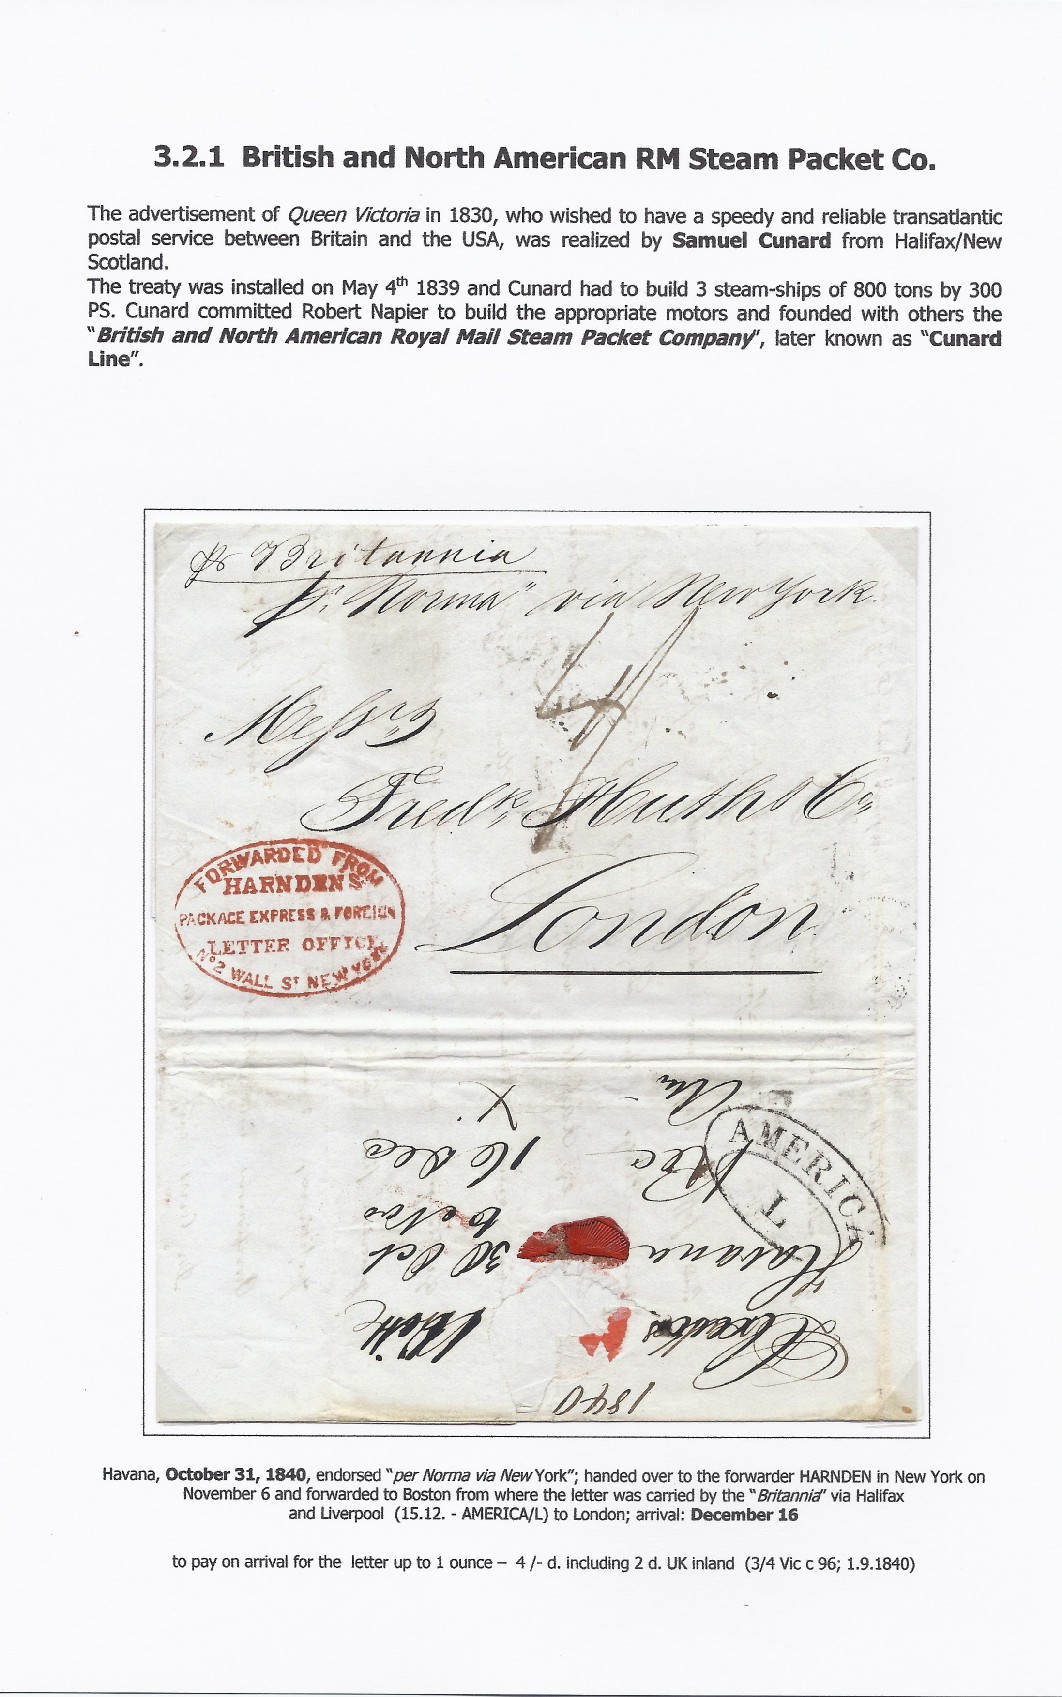 3.2.1 British and North American RM Steam Packet Co.
The advertisement of Queen Victoria in 1830, who wished to have a speedy and reliable transatlantic
postal service between Britain and the USA, was realized by Samuel Cunard from Halifax/New
Scotland.
The treaty was installed on May 4th 1839 and Cunard had to build 3 steam-ships of 800 tons by 300
PS. Cunard committed Robert Napier to build the appropriate motors and founded with others the
"British and North American Royal Mail Steam Packet Company", later known as "Cunard
Line".
pr Britannia
pr "Norma" via New York
4/
Messrs
Fredk Huth & Co
London
FORWARDED FROM
HARNDEN'S
PACKAGE EXPRESS & FOREIGN
LETTER OFFICE
No 2 WALL ST NEW YORK
AMERICA
L
1840
Havana
30 Oct
Rec
16 Dec
X
Havana, October 31, 1840, endorsed "per Norma via New York"; handed over to the forwarder HARNDEN in New York on
November 6 and forwarded to Boston from where the letter was carried by the "Britannia" via Halifax
and Liverpool (15.12. - AMERICA/L) to London; arrival: December 16
to pay on arrival for the letter up to 1 ounce – 4 /- d. including 2 d. UK inland (3/4 Vic c 96; 1.9.1840)